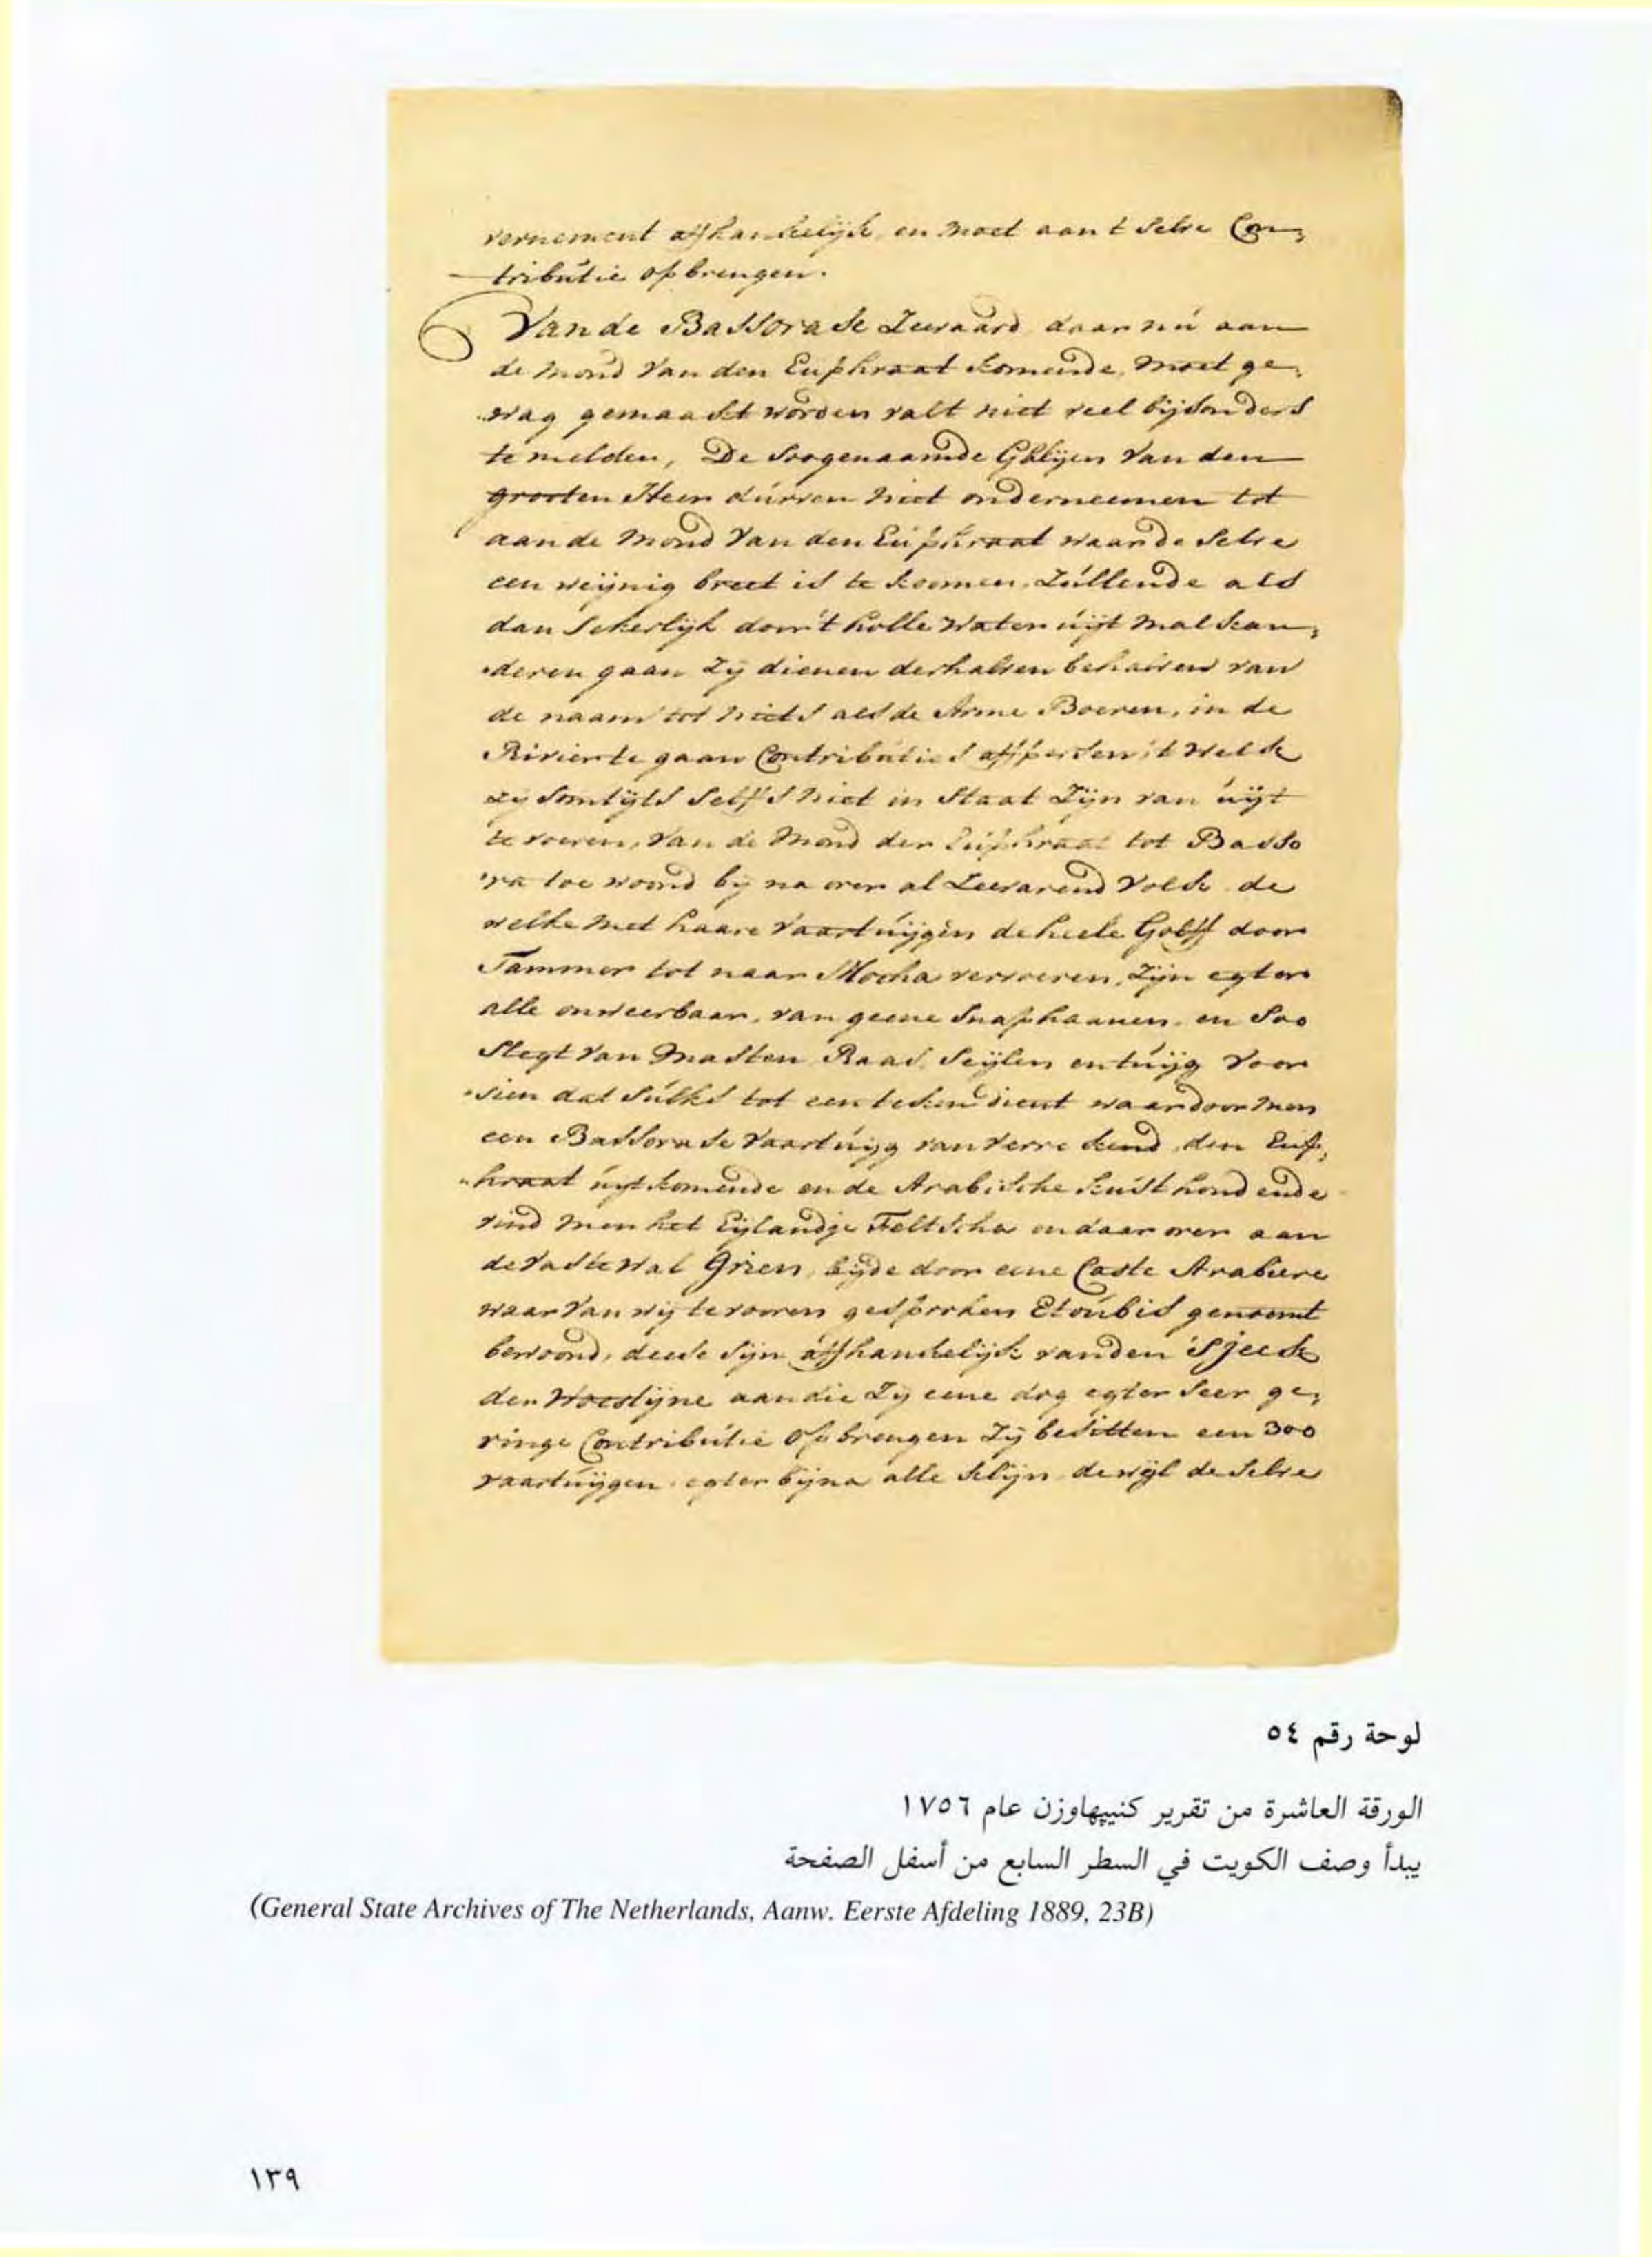 vernement affhankelijk, en moet aan t selve Con,
tributie opbrengen.
Van de Bassorase Zeevaard daar nu aan
de mond van den Euphraat komende, moet ge,
wag gemaakt worden valt niet veel bijsonders
te melden, De soogenaamde Galeijen van den
grooten Heer durven niet onderneemen tot
aan de mond van den Euphraat waar de selve
een weijnig breet is te koomen, Zullende als
dan sekerlijk door 't holle water uijt malkan,
deren gaan Zij dienen derhalven behalven van
de naam tot niets als de Arme Boeren, in de
Rivier te gaan Contributies affpersen, 't welk
Zij somtijts selfs niet in staat Zijn van uijt
te voeren, Van de mond der Euphraat tot Basso
ra toe woond bij na over al Zeevarend volk de
welke met haare vaartuijgen de heele Golff door
Jammer tot naar Mocha vervoeren, Zijn egter
alle onweerbaar, van geene Snaphaanen, en soo
slegt van Masten Raas, Seijlen en tuijg voor
sien dat sulks tot een teken dient waardoor men
een Bassorase vaartuijg van verre kend, den Eup,
hraat uijtkomende en de Arabische kust houdende
vind men het Eijlandje Feltscha en daar over aan
de vaste wal Grien, bijde door eene Caste Arabiere
waar van wij te vooren gesprooken Etoubis genoemt
bewoond, deese sijn affhankelijk van den Sjeek
der Woestijne aan die Zij eene dog egter seer ge,
ringe Contributie opbrengen Zij besitten een 300
vaartuijgen, egter bijna alle klijn, dewijl de selve
لوحة رقم ٥٤
الورقة العاشرة من تقرير كنيپهاوزن عام ١٧٥٦
يبدأ وصف الكويت في السطر السابع من أسفل الصفحة
(General State Archives of The Netherlands, Aanw. Eerste Afdeling 1889, 23B)
١٣٩